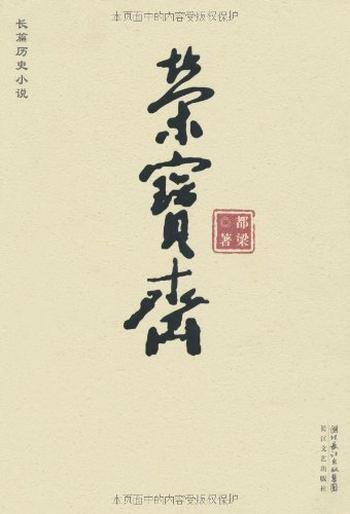 本页面中的内容受版权保护
长篇历史小说
榮寶齋
都梁
◎著
湖北长江出版集团
长江文艺出版社
本页面中的内容受版权保护